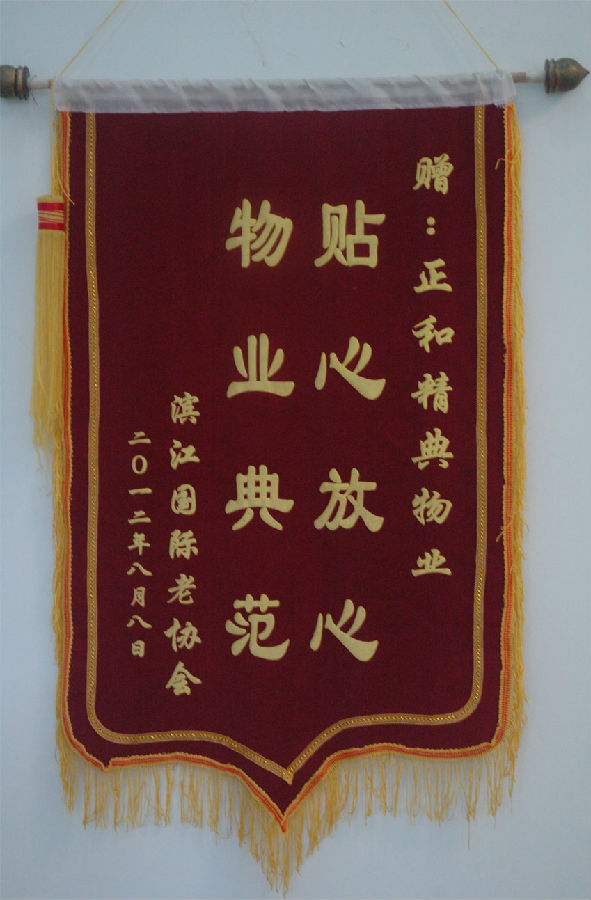 赠：正和精典物业
贴心放心
物业典范
滨江国际老协会
二〇一二年八月八日